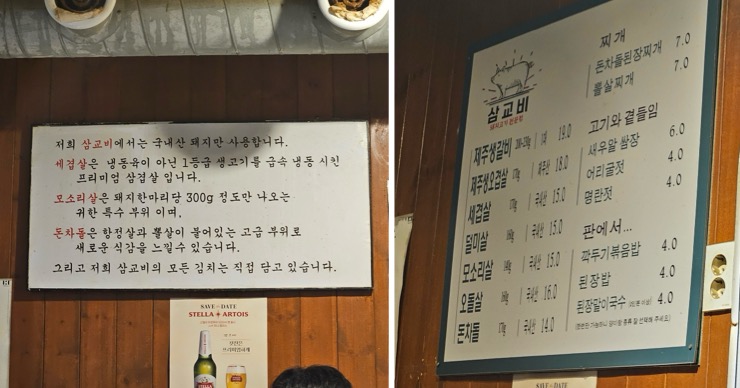 저희 삼교비에서는 국내산 돼지만 사용합니다.
세겹살은 냉동육이 아닌 1등급 생고기를 급속 냉동 시킨
프리미엄 삼겹살 입니다.
모소리살은 돼지한마리당 300g 정도만 나오는
귀한 특수 부위 이며,
돈차돌은 항정살과 뽈살이 붙어있는 고급 부위로
새로운 식감을 느낄수 있습니다.
그리고 저희 삼교비의 모든 김치는 직접 담고 있습니다.
SAVE the DATE
STELLA ARTOIS
삼교비
제주생갈비 1대 19.0
제주생오겹살 170g 제주산 18.0
세겹살 170g 국내산 15.0
덜미살 160g 국내산 15.0
모소리살 160g 국내산 15.0
오돌살 160g 국내산 16.0
돈차돌 170g 국내산 14.0
찌개
돈차돌된장찌개 7.0
뽈살찌개 7.0
고기와 곁들임
새우말 쌈장 6.0
어리굴젓 4.0
명란젓 4.0
판에서...
깍두기볶음밥 4.0
된장밥 4.0
된장말이국수 4.0
SAVE the DATE